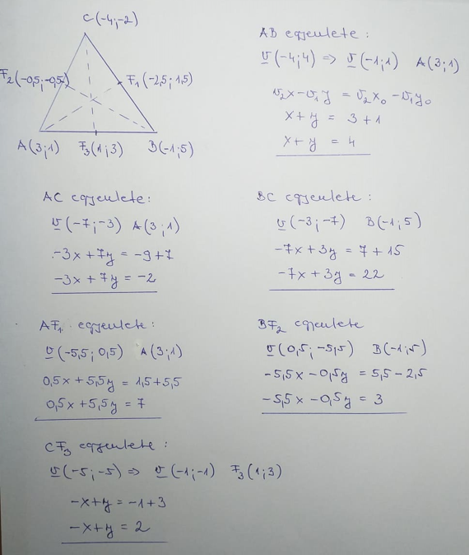 C(-4;-2)
F₂(-0,5;-0,5)
F₁(-2,5;1,5)
A(3;1)
F₃(1;3)
B(-1;5)
AB egyenlete:
v(-4;4) => v(-1;1) A(3;1)
v₂x-v₁y = v₂x₀-v₁y₀
x+y = 3+1
x+y = 4
AC egyenlete:
v(-7;-3) A(3;1)
-3x+7y = -9+7
-3x+7y = -2
BC egyenlete:
v(-3;-7) B(-1;5)
-7x+3y = 7+15
-7x+3y = 22
AF₁ egyenlete:
v(-5,5;0,5) A(3;1)
0,5x+5,5y = 1,5+5,5
0,5x+5,5y = 7
BF₂ egyenlete
v(0,5;-5,5) B(-1;5)
-5,5x-0,5y = 5,5-2,5
-5,5x-0,5y = 3
CF₃ egyenlete:
v(-5;-5) => v(-1;-1) F₃(1;3)
-x+y = -1+3
-x+y = 2